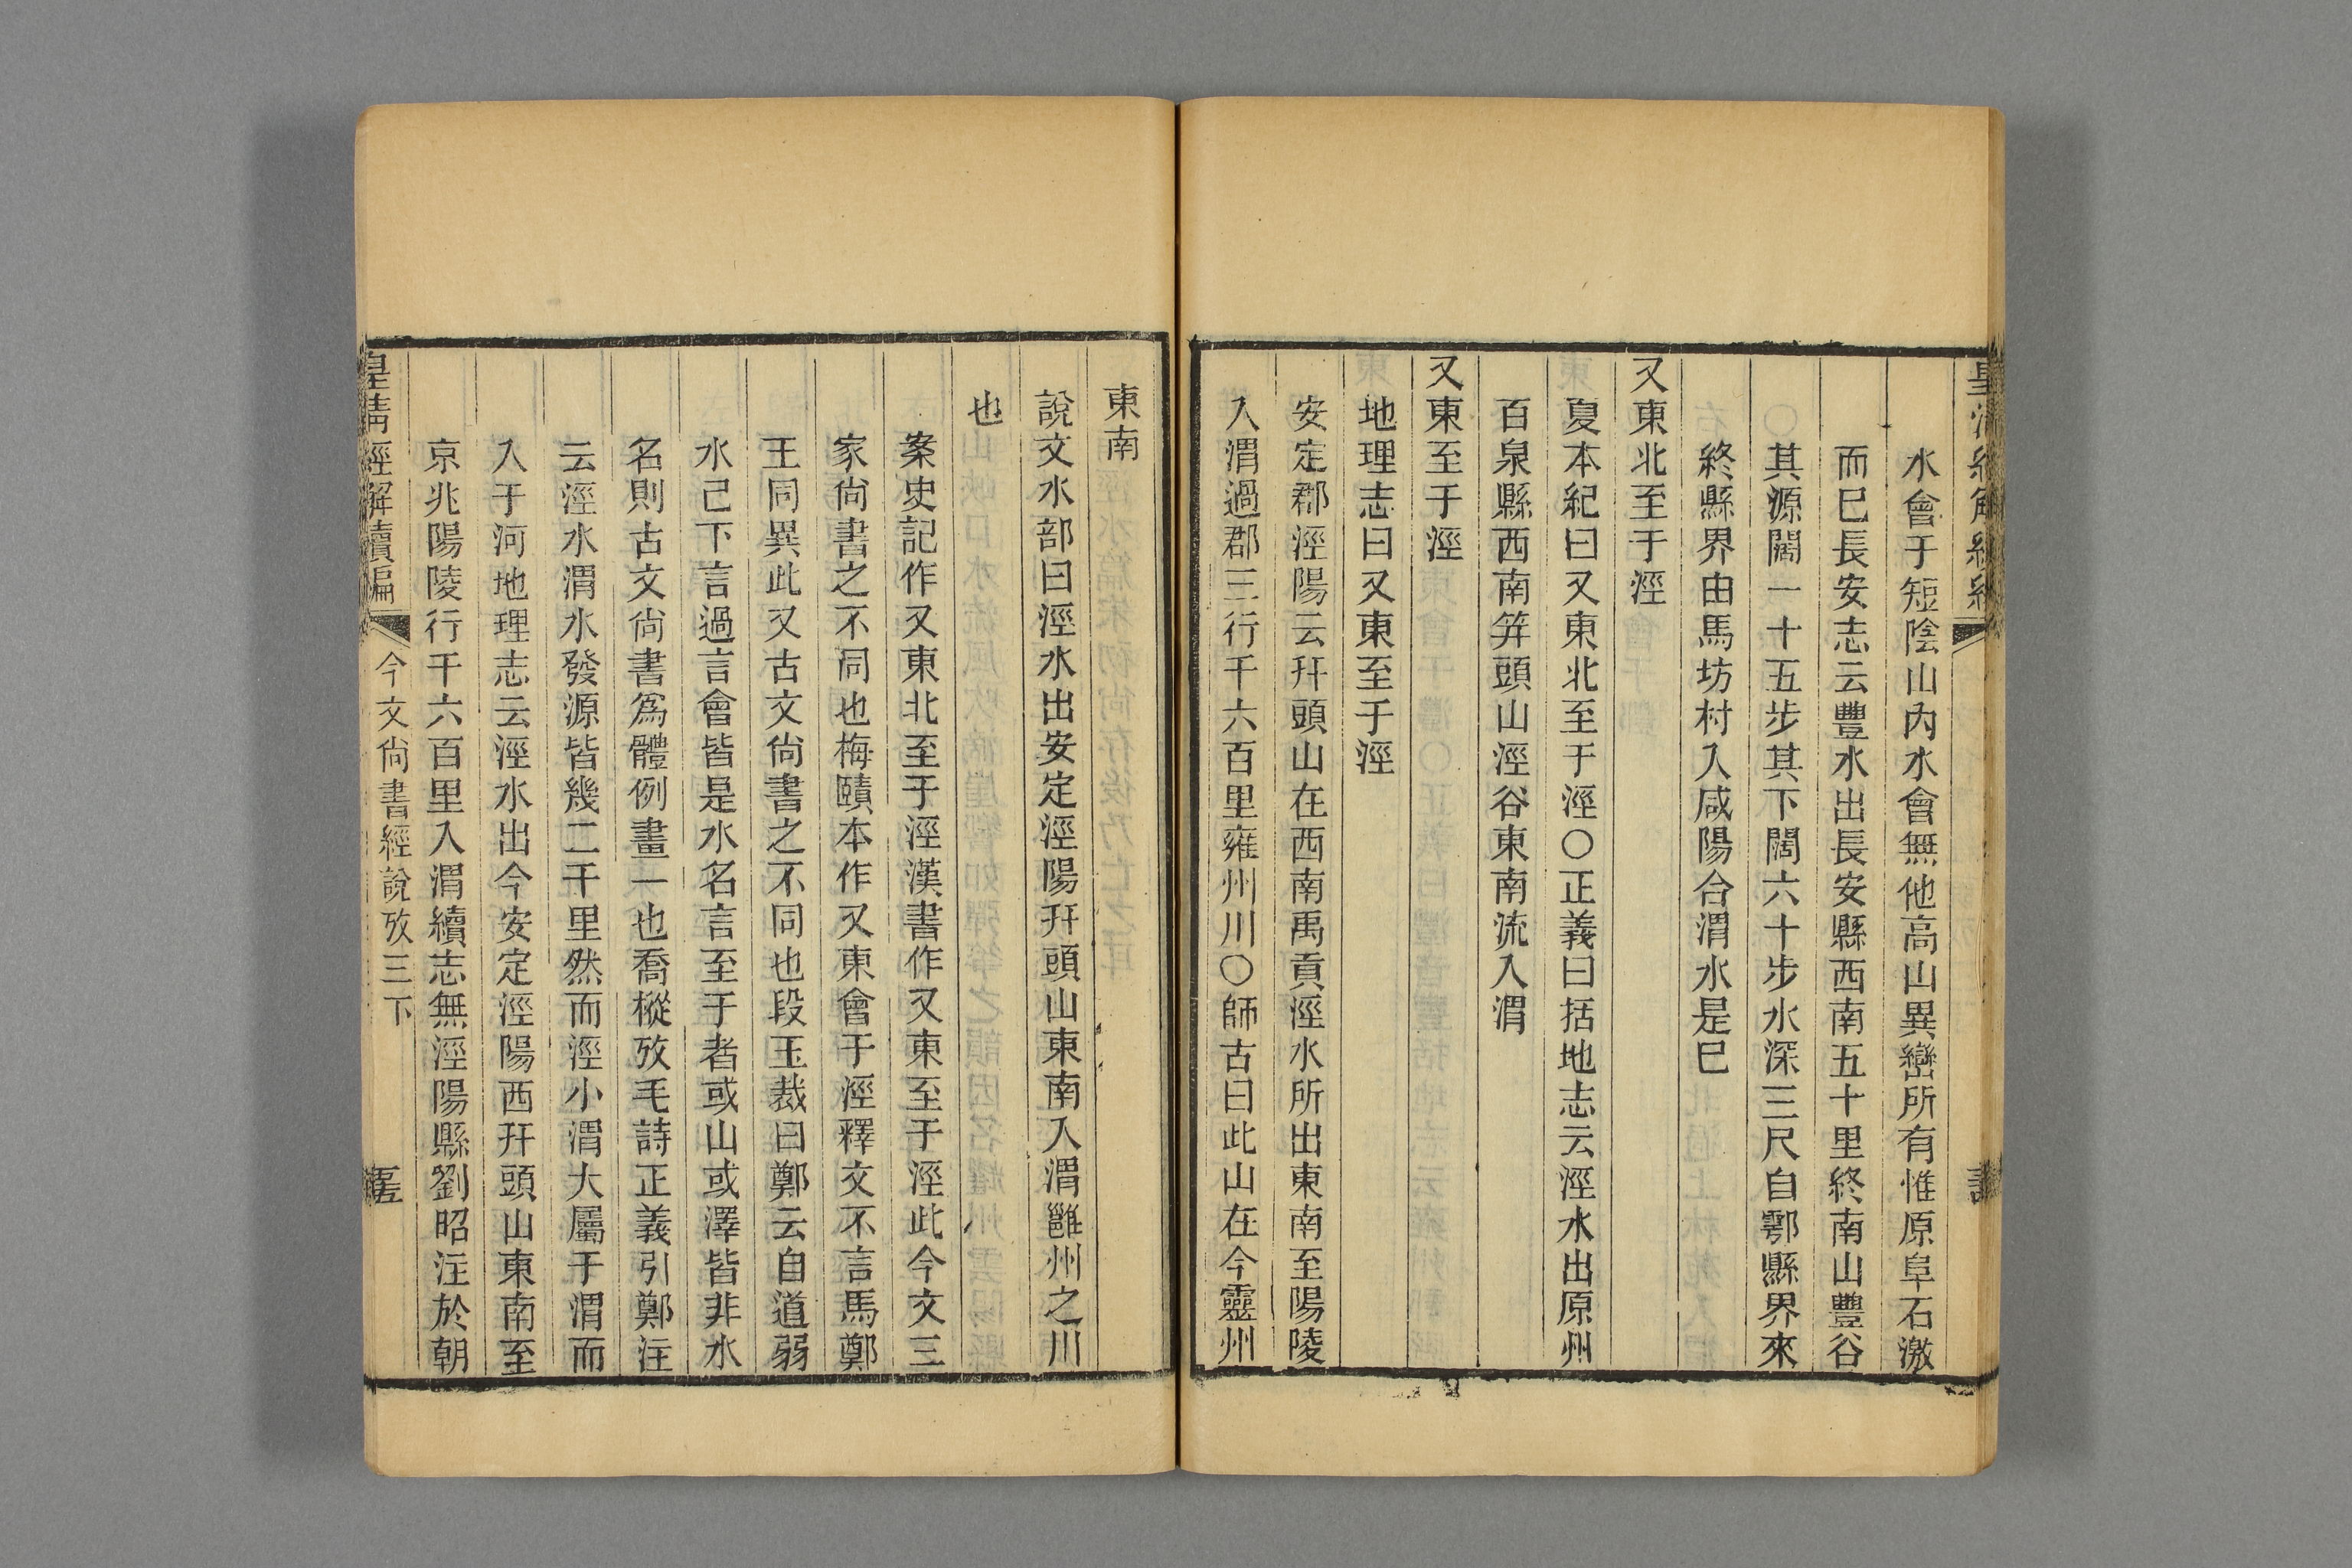 水會于短陰山內水會無他高山異巒所有惟原阜石激
而巳長安志云豐水出長安縣西南五十里終南山豐谷
其源闊一十五步其下闊六十步水深三尺自鄠縣界來
終縣界由馬坊村入咸陽合渭水是巳
又東北至于涇
夏本紀曰又東北至于涇○正義曰括地志云涇水出原州
百泉縣西南笄頭山涇谷東南流入渭
又東至于涇
地理志曰又東至于涇
安定郡涇陽云幵頭山在西南禹貢涇水所出東南至陽陵
入渭過郡三行千六百里雍州川○師古曰此山在今靈州
東南
說文水部曰涇水出安定涇陽幵頭山東南入渭雝州之川
也
案史記作又東北至于涇漢書作又東至于涇此今文三
家尙書之不同也梅賾本作又東會于涇釋文不言馬鄭
王同異此又古文尙書之不同也段玉裁曰鄭云自道弱
水己下言過言會皆是水名言至于者或山或澤皆非水
名則古文尙書爲體例畫一也喬樅攷毛詩正義引鄭注
云涇水渭水發源皆幾二千里然而涇小渭大屬于渭而
入于河地理志云涇水出今安定涇陽西幵頭山東南至
京兆陽陵行千六百里入渭續志無涇陽縣劉昭注於朝
皇清經解續編 今文尙書經說攷三下